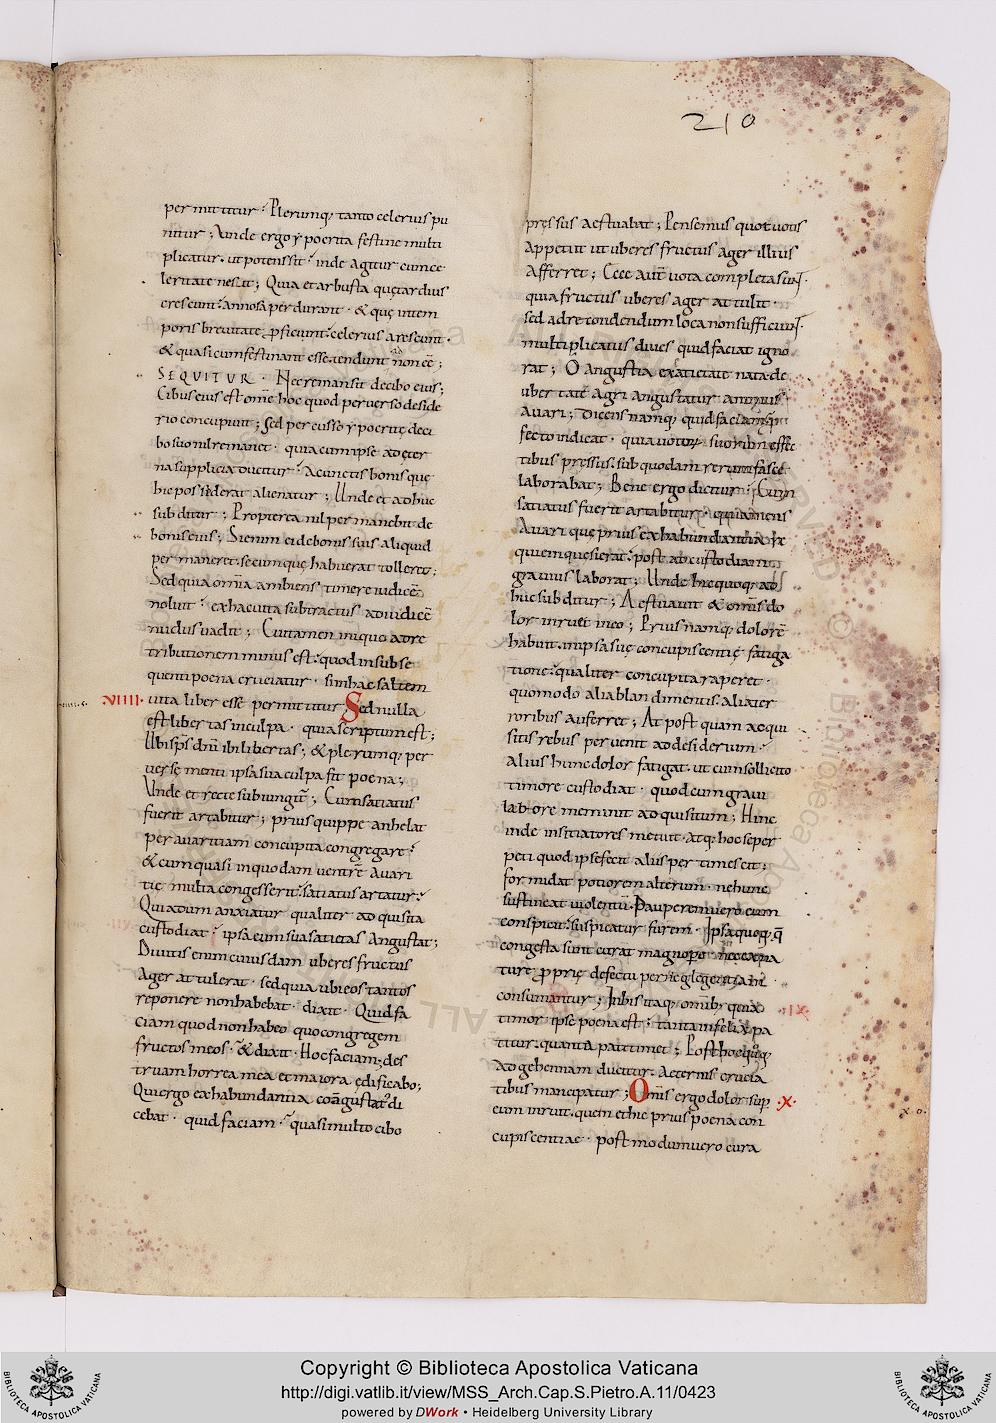 210
permittitur · Plerumq; tanto celerius pu
nitur ; Unde ergo ypocrita festine multi
plicatur · ut potens sit · inde agitur cum ce
leritate ne sit ; Quia et arbusta quę tardius
crescunt · annosa perdurant · & quę in tem
poris brevitate proficiunt · celerius arescunt ·
& quasi cum festinant esse · tendunt non eē ;
SEQUITUR · Nec remansit de cibo eius ;
Cibus eius est omē hoc quod perverso deside
rio concupivit ; Sed percusso ypocrite de ci
bo suo nil remanet · quia cum ipse ad ęter
na supplicia ducitur · a cunctis bonis que
hic possiderat alienatur ; Unde et adhuc
subditur ; Propterea nil permanebit de
bonis eius ; Si enim ei de bonis suis aliquid
permaneret · secum que habuerat tolleret ;
Sed quia omnia ambiens timere iudicē
noluit · ex hac vita subtractus ad iudicē
nudus vadit ; Cui tamen iniquo ad re
tributionem minus est · quod in subse
quenti poena cruciatur · si in hac saltem
·VIIII· vita liber esse permittitur ; Sed nulla
est libertas in culpa · quia scriptum est ;
Ubi sps dnī ibi libertas ; & plerumq; per
versę menti ipsa sua culpa fit poena ;
Unde et recte subiungitur ; Cum satiatus
fuerit artabitur ; prius quippe anhelat
per avaritiam concupita congregare ·
& cum quasi in quodam ventre avari
tię multa congesserit · satiatus artatur ·
Qui dum anxiatur qualiter adquisita
custodiat · ipsa eum sua satietas angustat ;
Divitis enim cuiusdam uberes fructus
ager attulerat · sed quia ubi eos tantos
reponere non habebat · dixit · Quid fa
ciam quod non habeo quo congregem
fructos meos · & dixit · Hoc faciam ; des
truam horrea mea et maiora ędificabo ;
Qui ergo ex habundantia coangustatus di
cebat · quid faciam · quasi multo cibo
pręssus aestuabat ; Pensemus quot votis
appetiit ut uberes fructus ager illius
afferret ; Ecce autē vota completa sunt ·
quia fructus uberes ager attulit ·
sed ad recondendum loca non sufficiunt ·
multiplicatus dives quid faciat igno
rat ; O angustia ex satietate nata · de
ubertate agri angustatur animus
avari ; Dicens namq; quid faciam · pro
fecto indicat · quia votorum suorum effec
tibus pressus · sub quodam rerum fasce
laborabat ; Bene ergo dicitur · Cum
satiatus fuerit artabitur · quia mens
avari quę prius ex habundantia re
quiem quesierat · post ad custodiam
gravius laborat ; Unde hic quoq; ad
huc subditur ; Aestuavit & omnis do
lor irruet in eo ; Prius namq; dolorē
habuit · in ipsa suę concupiscentię fatiga
tione · qualiter concupita raperet ·
quomodo alia blandimentis · alia ter
roribus auferret ; At postquam acqui
sitis rebus pervenit ad desiderium ·
alius hunc dolor fatigat · ut cum sollicito
timore custodiat · quod cum gravi
labore meminit adquisitum ; Hinc
inde insidiatores metuit · atq; hoc se per
peti quod ipse fecit aliis pertimescit ;
formidat potiorem alterum · ne hunc
sustineat violentū · Pauperem vero cum
conspicit · suspicatur furem · Ipsa quoq; q̄
congesta sunt curat magnopere · ne ex na
turę proprię defectu per neglegentiam
consumantur ; In his itaq; omnib; quia
timor ipse poena est · tanta infelix pa
titur · quanta pati timet ; Post hoc quoq;
ad gehennam ducitur · aeternis crucia
tibus mancipatur ; Omnis ergo dolor sup ·X·
eum irruit · quem et hic prius poena con
cupiscentiae · postmodum vero cura
Copyright © Biblioteca Apostolica Vaticana
http://digi.vatlib.it/view/MSS_Arch.Cap.S.Pietro.A.11/0423
powered by DWork • Heidelberg University Library
BIBLIOTECA APOSTOLICA VATICANA
BIBLIOTECA APOSTOLICA VATICANA